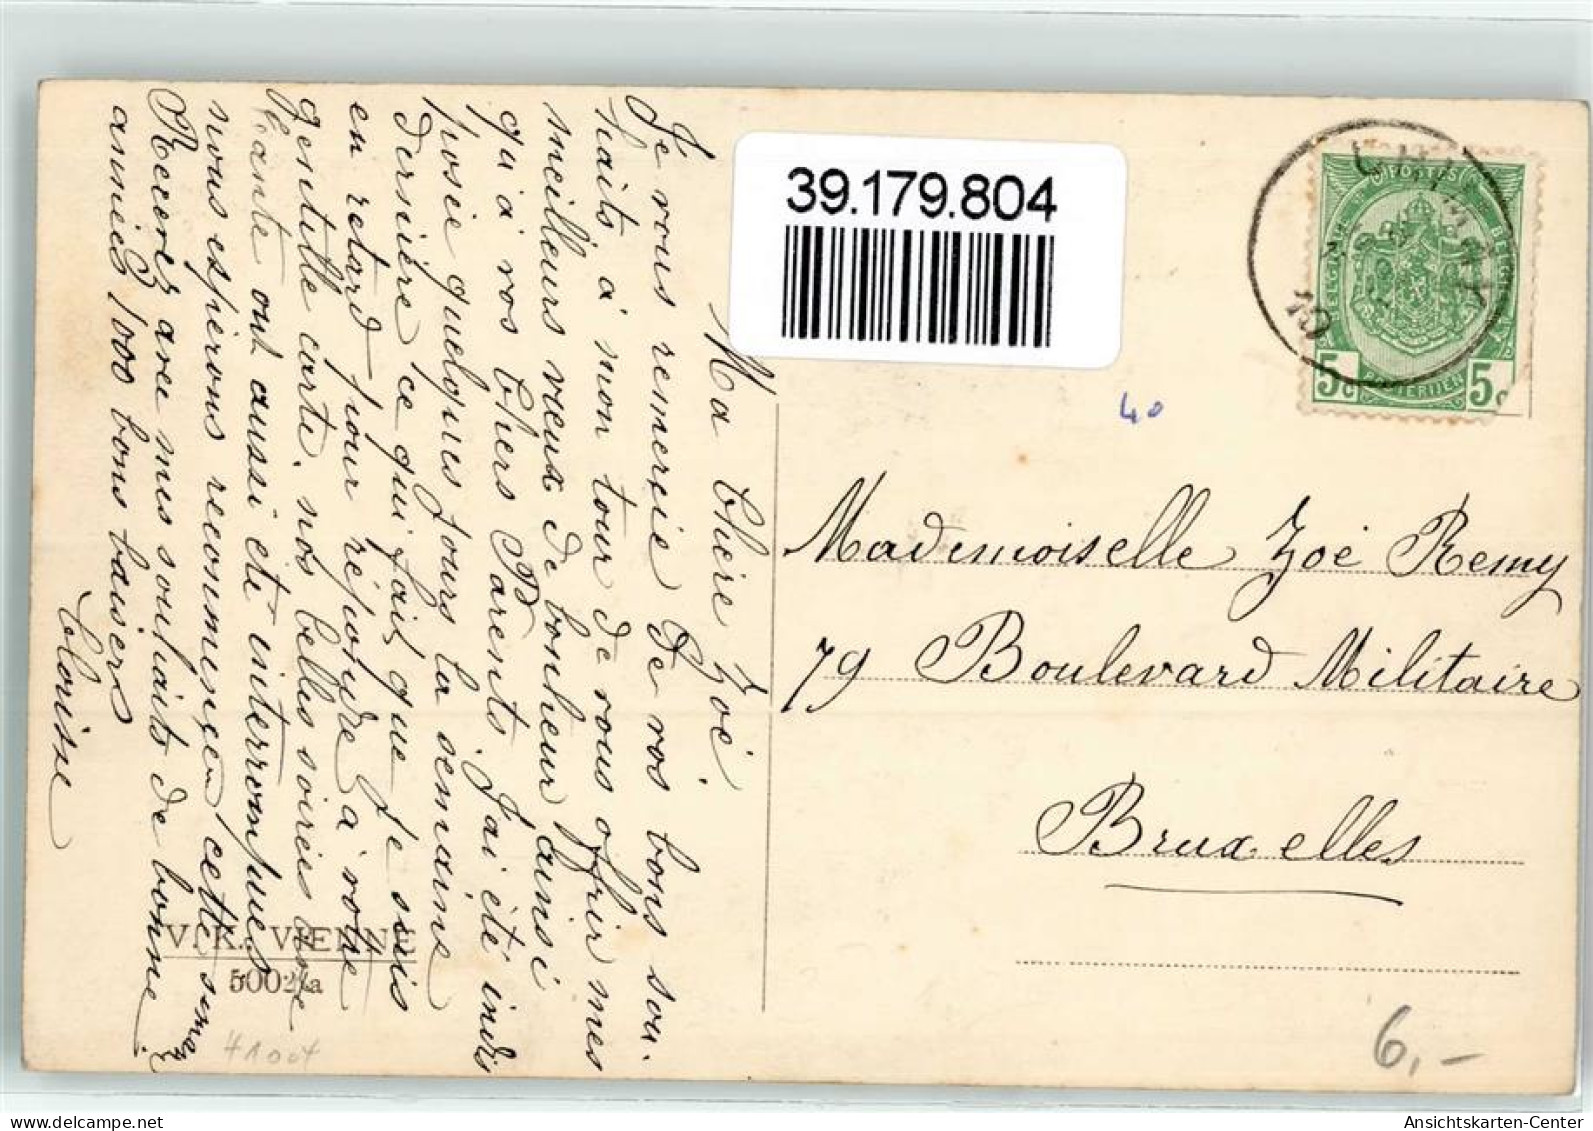 39.179.804
Ma chère Zoé.
Je vous remercie de vos bons sou-
haits, à mon tour de vous offrir mes
meilleurs vœux de bonheur, ainsi
qu'à vos Chers Parents. J'ai été indis
posée quelques jours la semaine
dernière, ce qui fait que je suis
en retard pour répondre à votre
gentille carte. nos belles soirées
ont aussi été interrompues
nous espérons recommencer cette
Recevez avec mes souhaits de bonne
années 1000 bons baisers
V. K. VIENNE
CHIMAY
POSTES BELGIQUE
5c 5c
40
Mademoiselle Zoé Remy
79 Boulevard Militaire
Bruxelles
6,-
AnsichtsKarten-Center